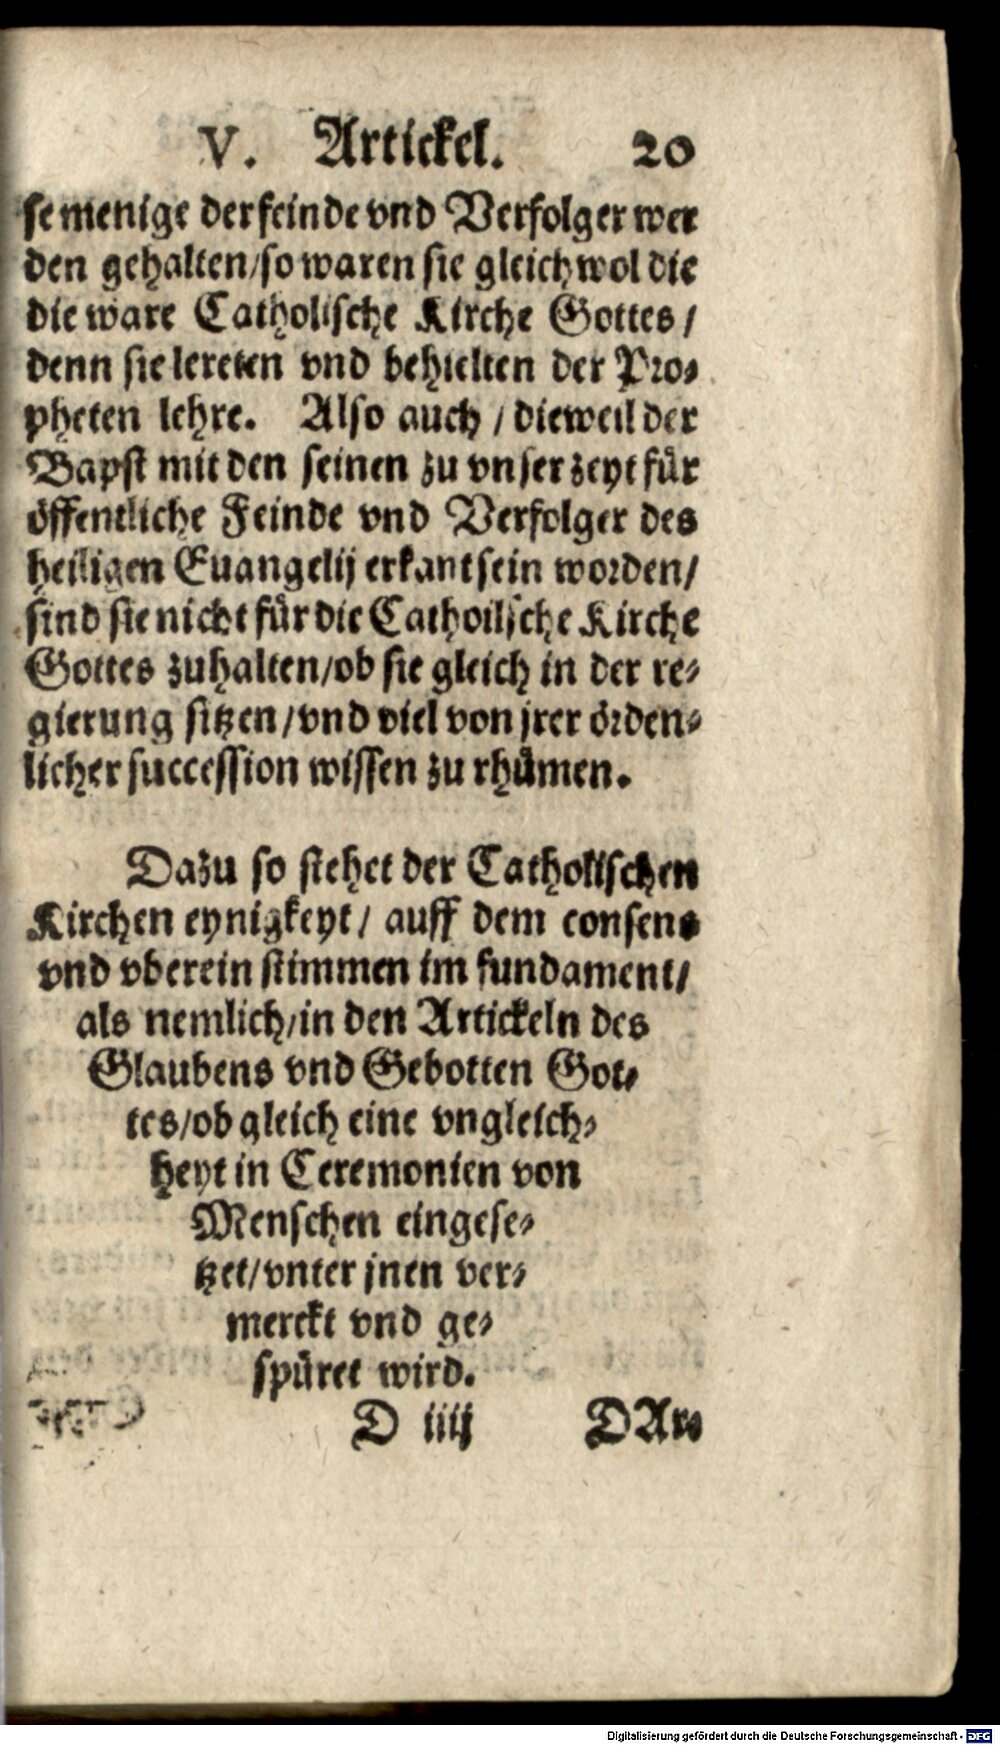 V. Artickel. 20
se menige der feinde vnd Verfolger wer
den gehalten/so waren sie gleich wol die
die ware Catholische Kirche Gottes/
denn sie lereten vnd behielten der Pro-
pheten lehre. Also auch / dieweil der
Bapst mit den seinen zu vnser zeyt für
öffentliche Feinde vnd Verfolger des
heiligen Euangelij erkant sein worden/
sind sie nicht für die Cathoilsche Kirche
Gottes zuhalten/ob sie gleich in der re-
gierung sitzen/vnd viel von jrer örden-
licher succession wissen zu rhümen.
Dazu so stehet der Catholischen
Kirchen eynigkeyt/ auff dem consens
vnd vberein stimmen im fundament/
als nemlich/in den Artickeln des
Glaubens vnd Gebotten Got-
tes/ob gleich eine vngleich-
heyt in Ceremonien von
Menschen eingese-
tzet/vnter jnen ver-
merckt vnd ge-
spüret wird.
D iiij DAr-
Digitalisierung gefördert durch die Deutsche Forschungsgemeinschaft - DFG